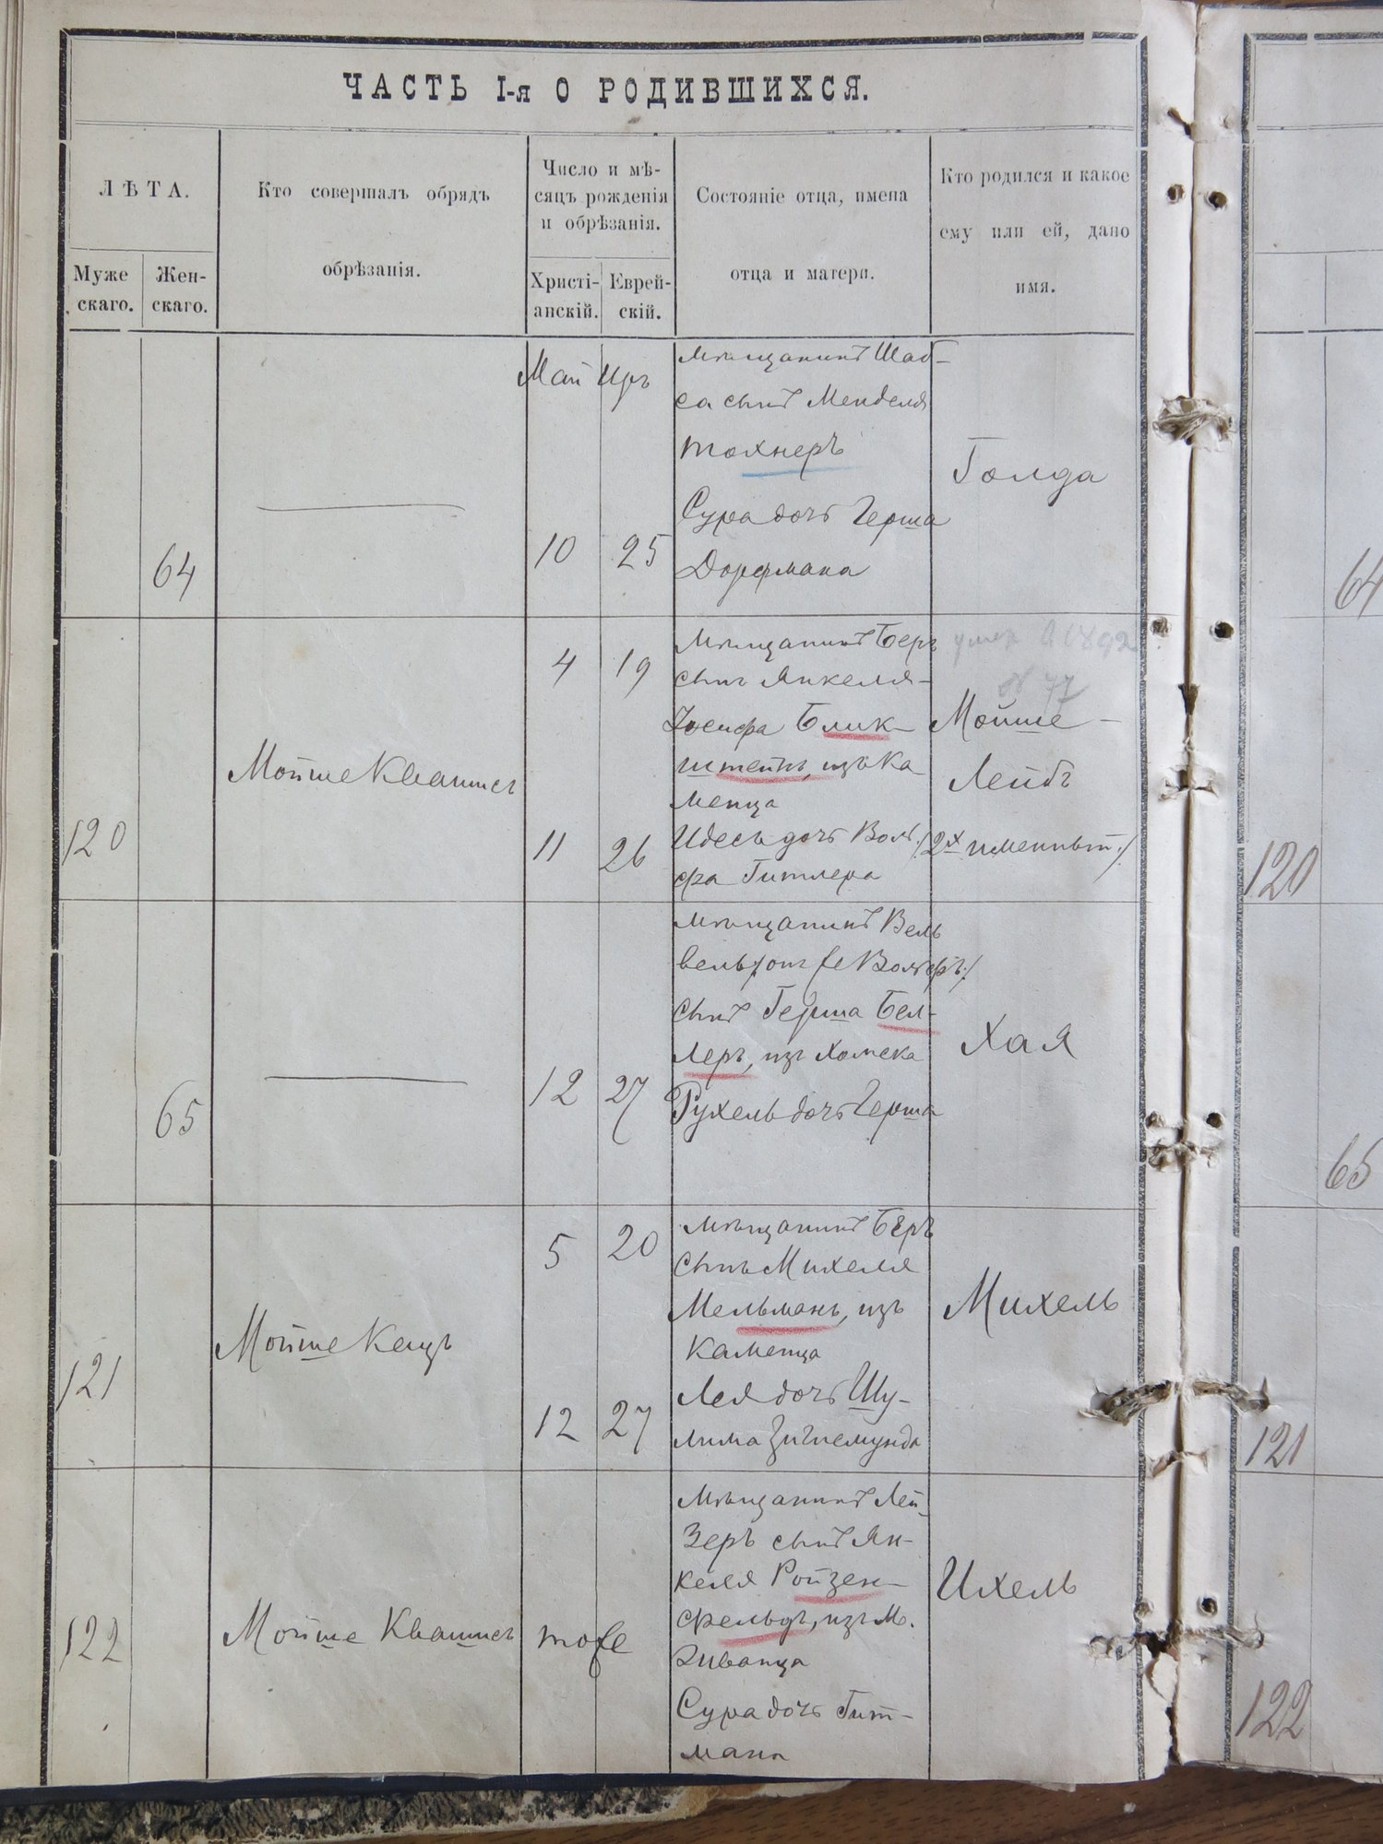 ЧАСТЬ I-я О РОДИВШИХСЯ.
ЛѢТА.
Муже
скаго.
Жен-
скаго.
Кто совершалъ обрядъ
обрѣзанія.
Число и мѣ-
сяцъ рожденія
и обрѣзанія.
Христі-
анскій.
Еврей-
скій.
Состояніе отца, имена
отца и матери.
Кто родился и какое
ему или ей, дано
имя.
64
Май Иръ
10 25
мѣщанинъ Шаб-
са сынъ Менделя
Тохнеръ
Сура дочь Герша
Дорфмана
Голда
64
120
Мойше Квашис
4 19
11 26
мѣщанинъ Беръ
сынъ Янкеля-
Іосифа Блик-
штейнъ, изъ Ка
менца
Идесь дочь Воль
фа Гитлера
умер 1892
№ 77
Мойше-
Лейбъ
/2х именный/
120
65
12 27
мѣщанинъ Вель
вель /онъ же Вольфъ/
сынъ Герша Бел-
леръ, изъ Хомека
Рухель дочь Герша
Хая
65
121
Мойше Кецъ
5 20
12 27
мѣщанинъ Беръ
сынъ Михеля
Мельманъ, изъ
Каменца
Лея дочь Шу-
лима
Михель
121
122
Мойше Квашис
тоже
мѣщанинъ Лей
зеръ сынъ Ян-
келя Ройзен-
фельдъ, изъ м.
Жванца
Сура дочь Гит-
мана
Ихель
122